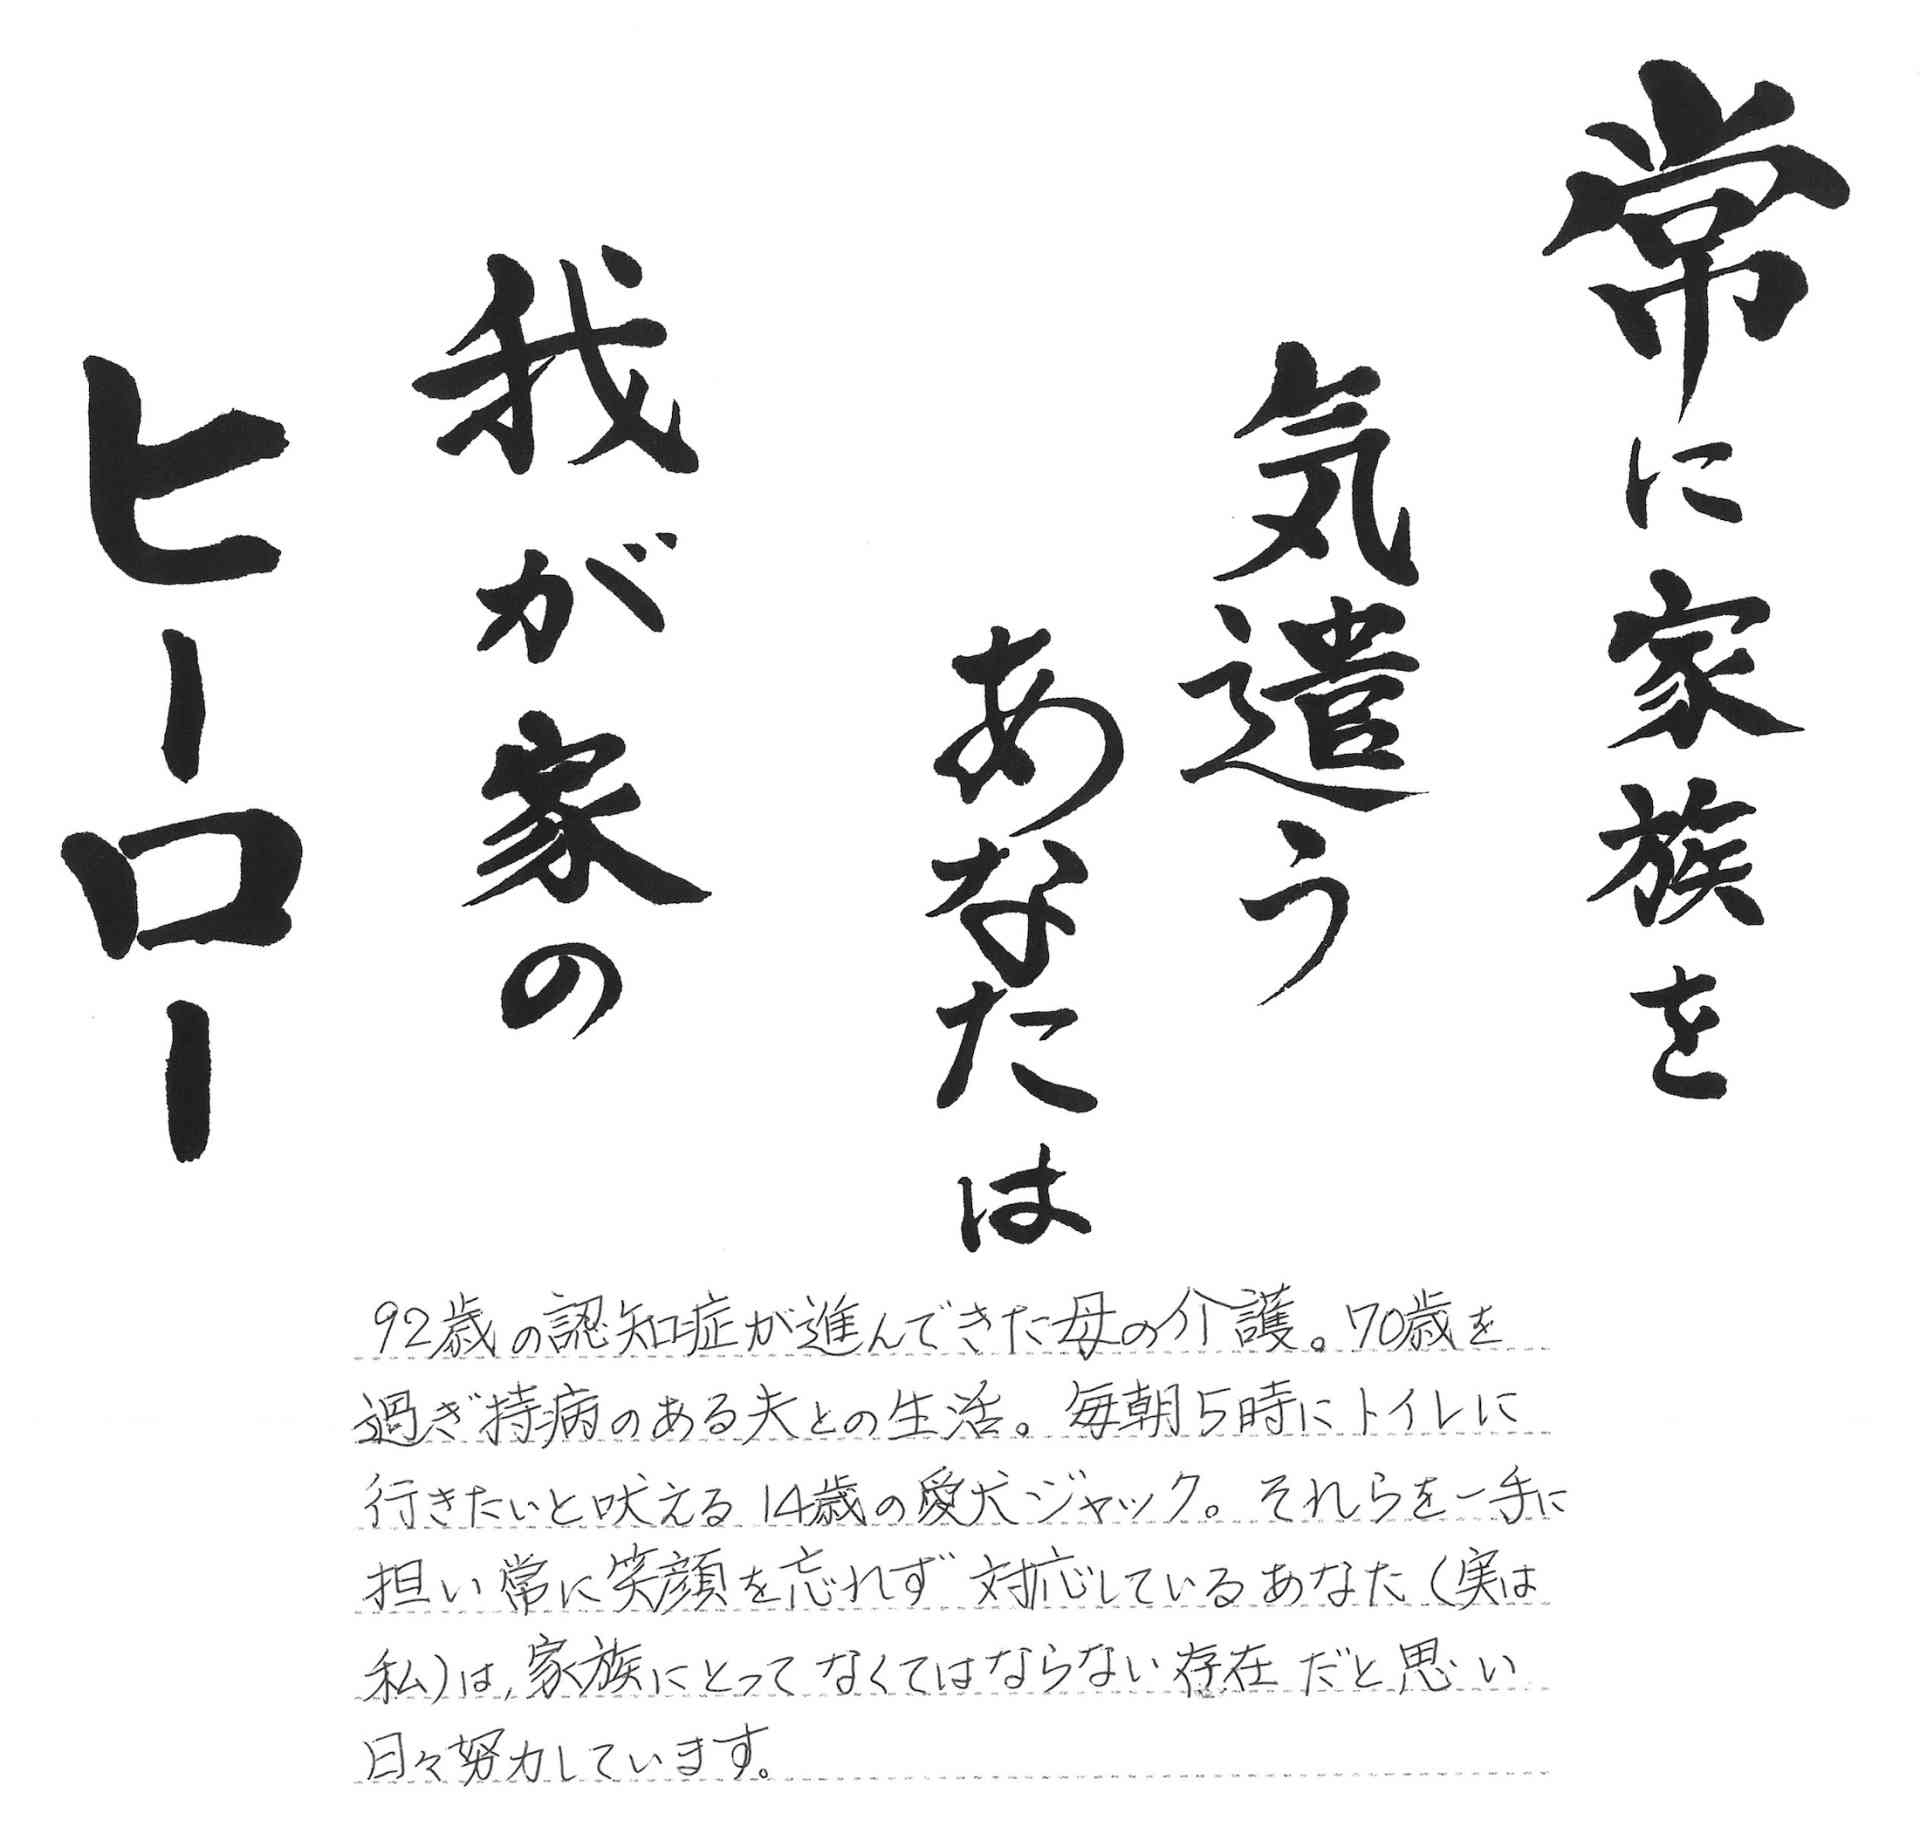 常に家族を
気遣う
あなたは
我が家の
ヒーロー
92歳の認知症が進んできた母の介護。70歳を
過ぎ持病のある夫との生活。毎朝5時にトイレに
行きたいと吠える14歳の愛犬ジャック。それらを一手に
担い常に笑顔を忘れず対応しているあなた(実は
私)は,家族にとってなくてはならない存在だと思い
日々努力しています。